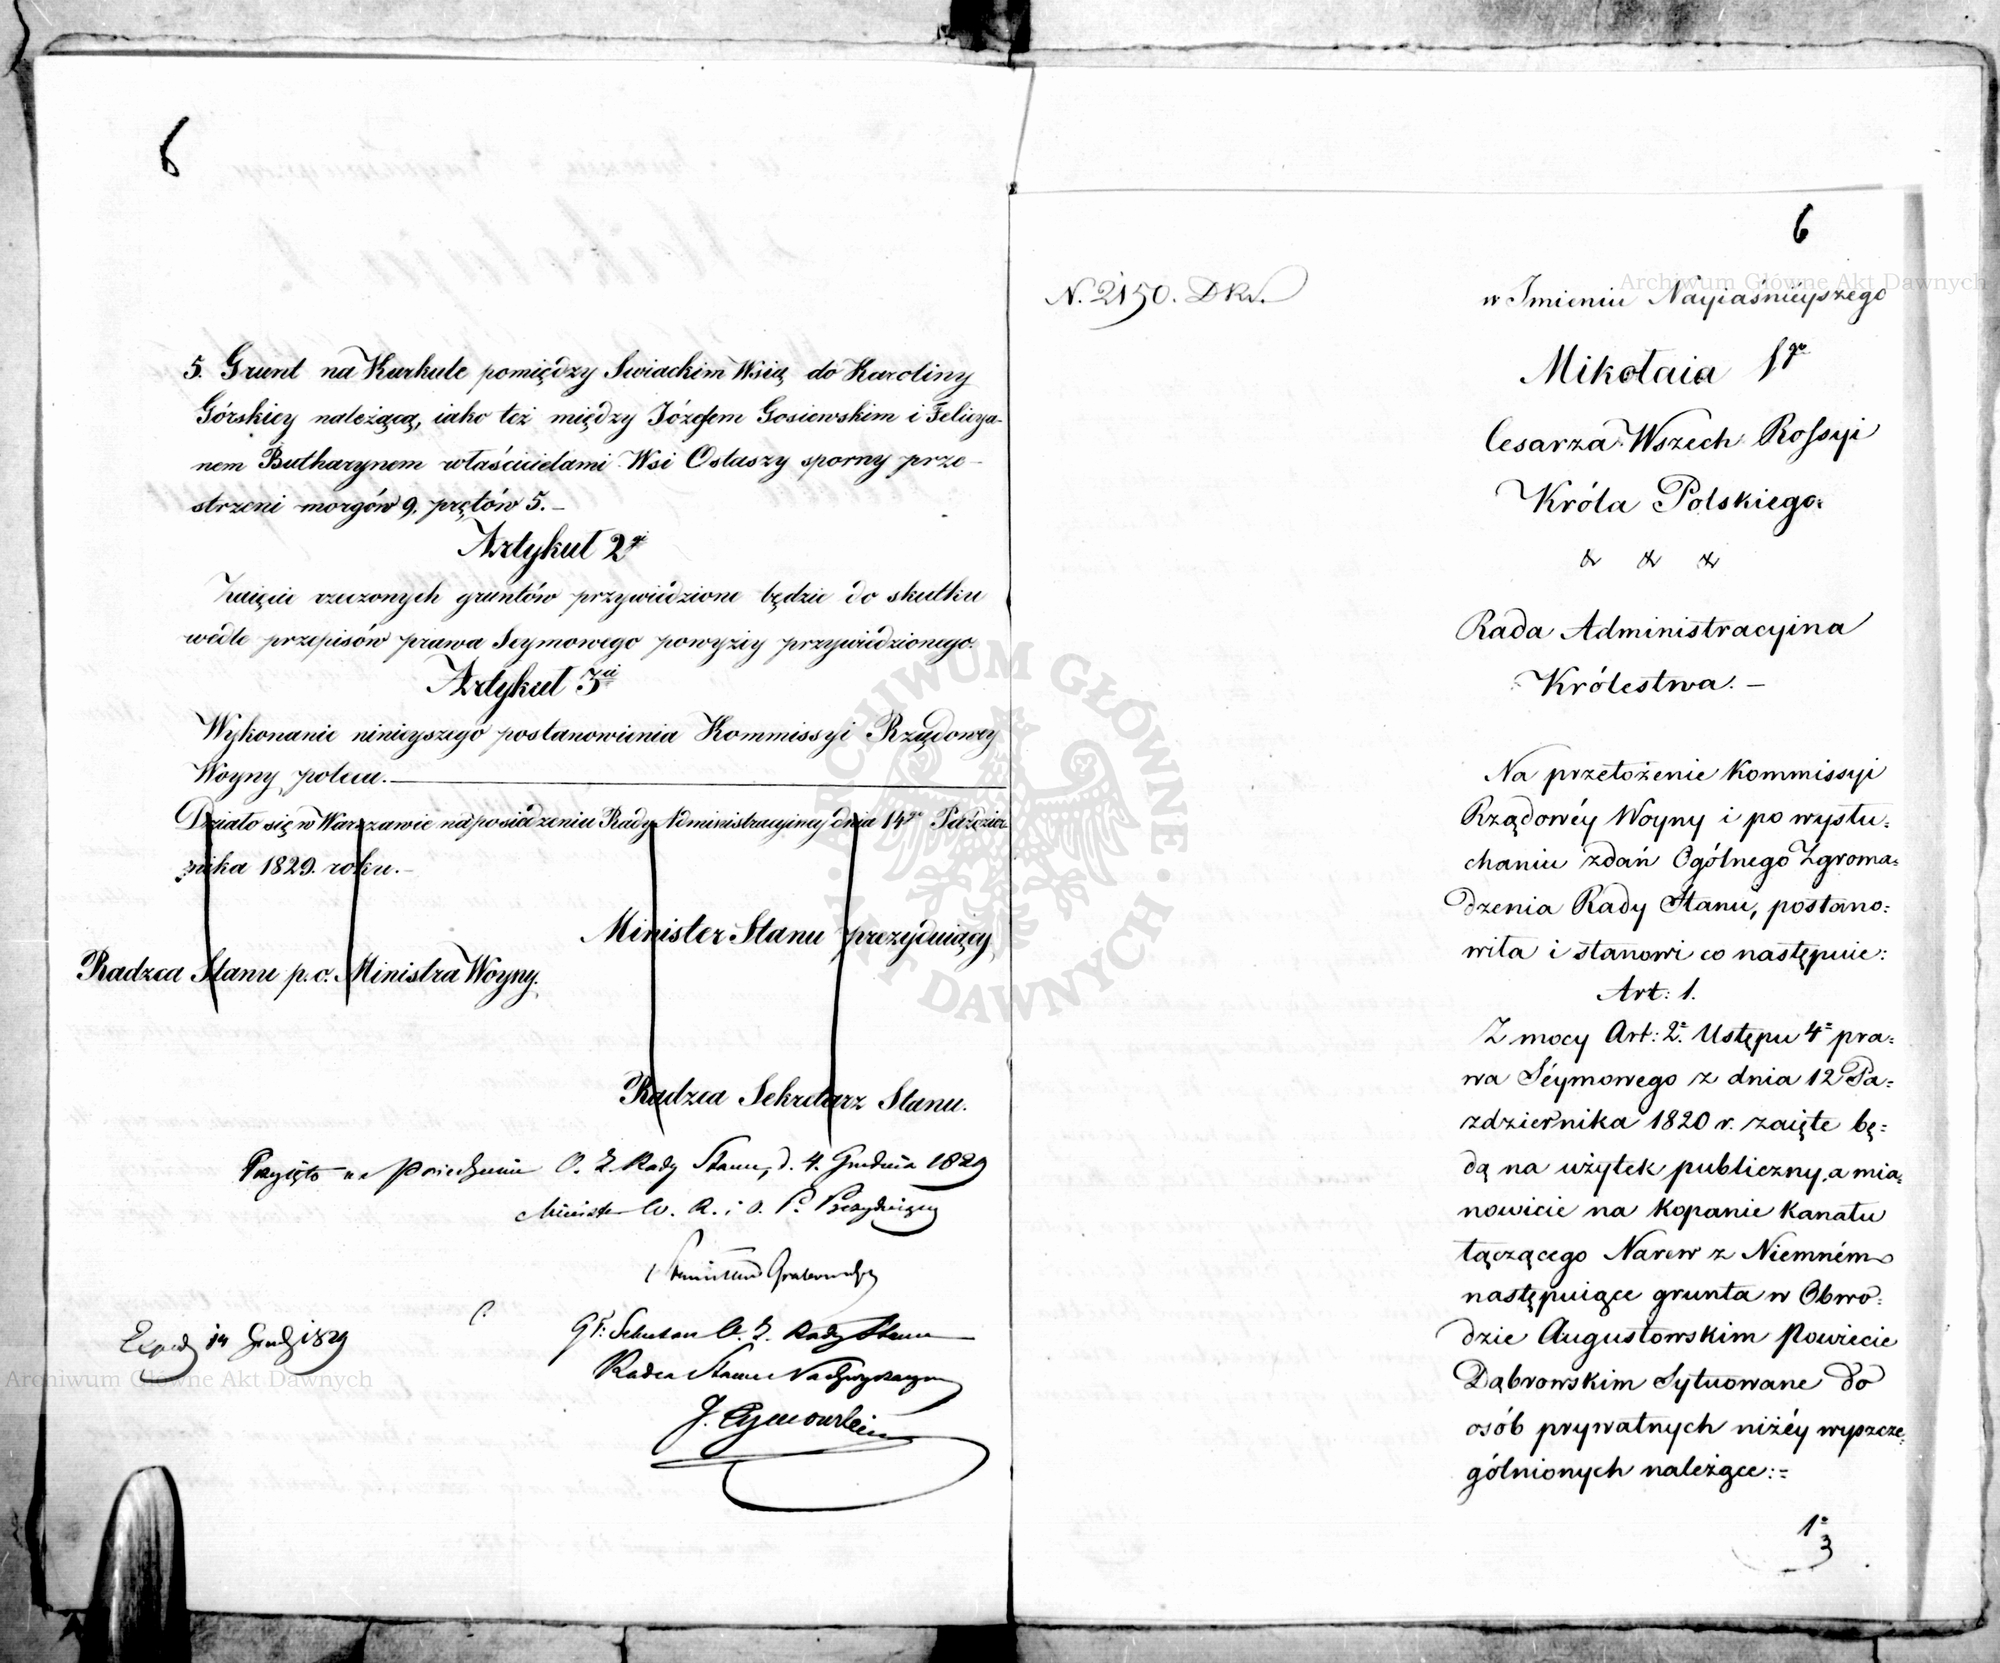 6
5. Grunt na Kurkule pomiędzy Swiackim Wsią do Karoliny
Górskiey należącą, iako też między Józefem Gosiewskim i Felicya-
nem Butharynem właścicielami Wsi Ostaszy sporny prze-
strzeni morgów 9. prętów 5.-
Artykuł 2gi
Zaięcie rzeczonych gruntów przywiedzione będzie do skutku
wedle przepisów prawa Seymowego powyżey przywiedzionego.
Artykuł 3ci
Wykonanie ninieyszego postanowienia Kommissyi Rządowey
Woyny poleca.
Działo się w Warszawie na posiedzeniu Rady Administracyiney dnia 14go Paździer-
nika 1829. roku.-
Minister Stanu prezyduiący
Radzca Stanu p.o. Ministra Woyny.
Radzca Sekretarz Stanu.
Przyięto na Posiedzeniu O. Z. Rady Stanu, d. 4. Grudnia 1829
Minister W. R. i O. P. Prezyduiący
Stanisław Grabowski
Sekretarz O. Z. Rady Stanu
Radca Stanu Nadzwyczayny
Exped 14 Grud 1829
N. 2150. DKw.
6
w Imieniu Nayiaśnieyszego
Mikołaia Igo
Cesarza Wszech Rossyi
Króla Polskiego.
& & &
Rada Administracyina
Królestwa.-
Na przełożenie Kommissyi
Rządowéy Woyny i po wysłu:
chaniu zdań Ogólnego Zgroma:
dzenia Rady Stanu, postano:
wiła i stanowi co następuie:
Art: 1.
Z mocy Art: 2. Ustępu 4 pra:
wa Séymowego z dnia 12 Pa:
zdziernika 1820 r. zaięte bę:
dą na użytek publiczny, a mia:
nowicie na kopanie kanału
łączącego Narew z Niemném
następuiące grunta w Obwo:
dzie Augustowskim Powiecie
Dąbrowskim sytuowane do
osób prywatnych niżéy wyszcze:
gólnionych należące:=
1°
3
ARCHIWUM GŁÓWNE AKT DAWNYCH
Archiwum Główne Akt Dawnych
Archiwum Główne Akt Dawnych